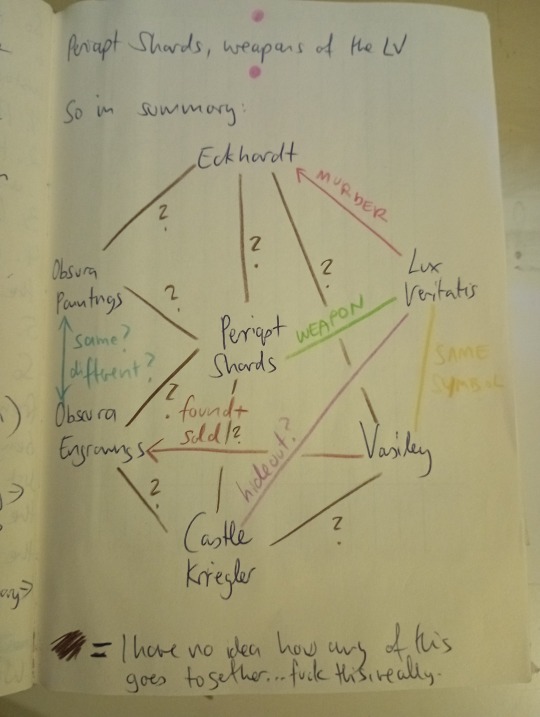 Periapt Shards, weapons of the LV
So in summary:
Eckhardt
MURDER
?
?
?
Obsura
Paintings
Lux
Veritatis
?
WEAPON
Periapt
Shards
same?
different?
SAME
SYMBOL
?
found +
sold
?
Obsura
Engravings
hideout?
Vasiley
?
?
Castle
Kriegler
= I have no idea how any of this
goes together...fuck this, really.